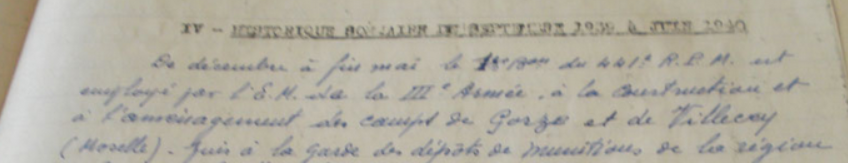 IV - HISTORIQUE SOMMAIRE DE SEPTEMBRE 1939 à JUIN 1940
De décembre à fin mai le 1er Bon du 441e R.P.M. est
employé par l'E.M. de la IIIe Armée, à la construction et
à l'aménagement des camps de Gorze et de Villecey
(Moselle). Puis à la garde des dépôts de munitions de la région